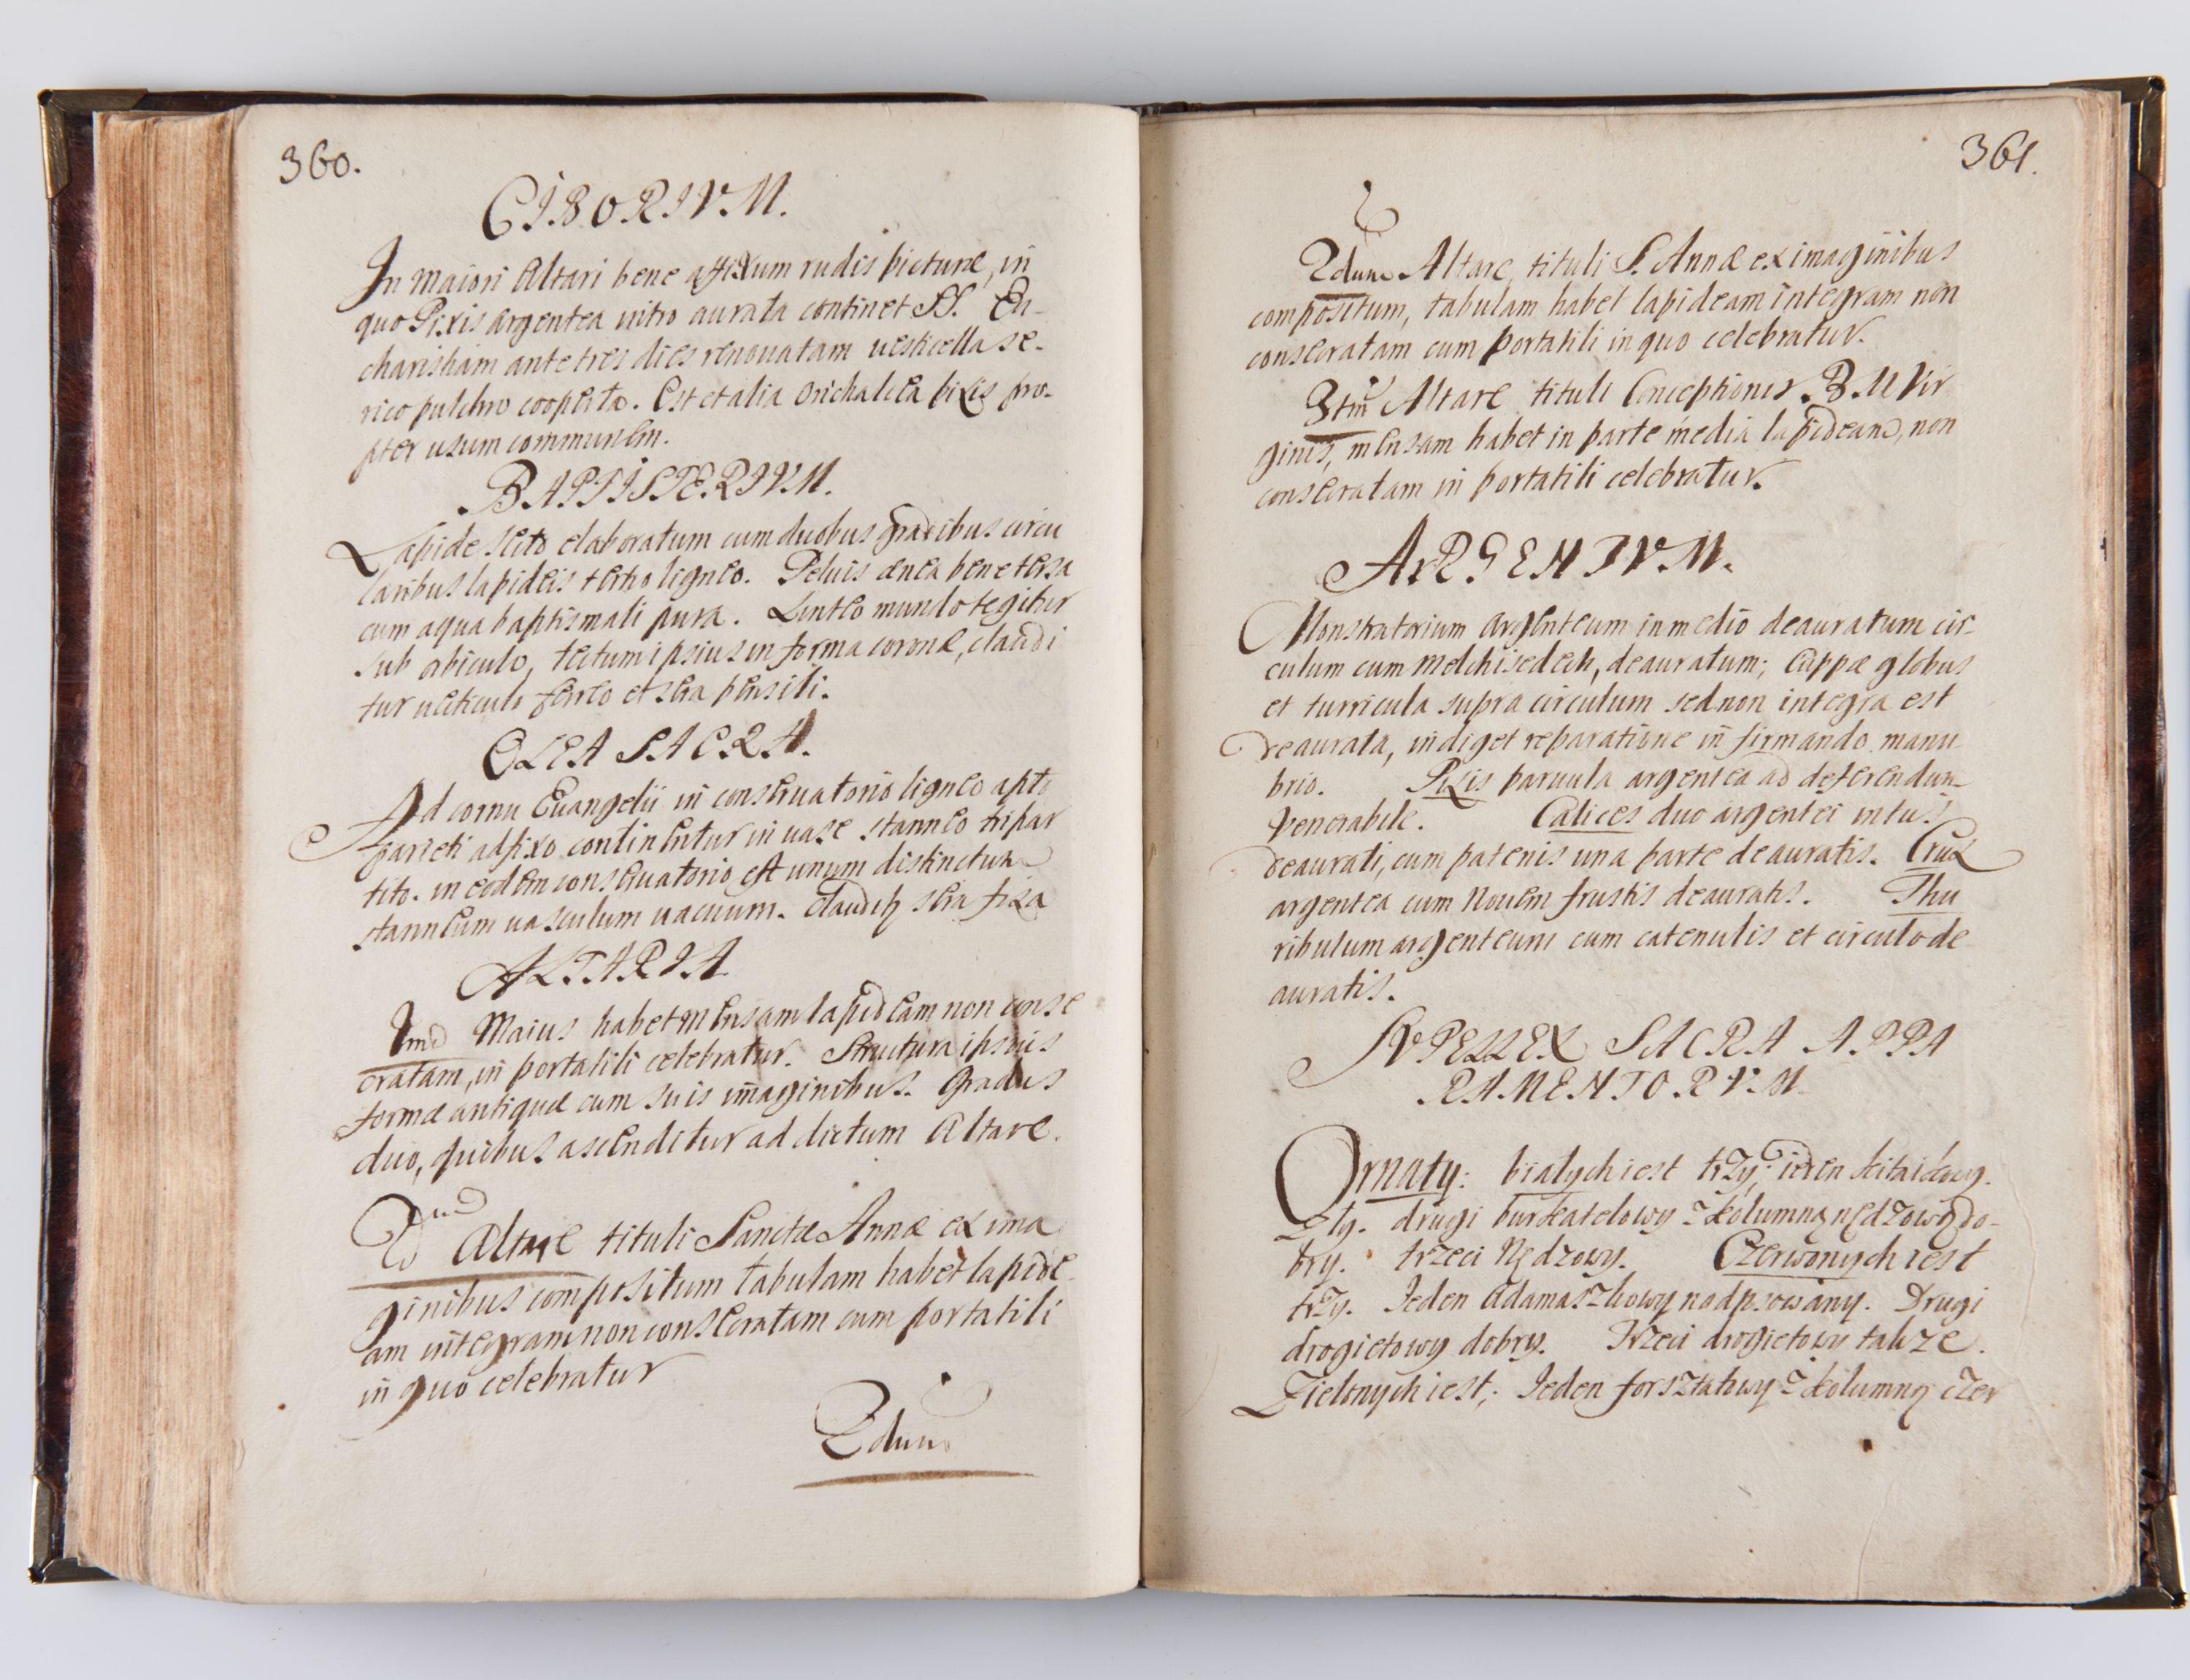 360.
CIBORIVM.
In maiori Altari bene affixum rudis picturæ, in
quo Pixis argentea intro aurata continet SS. Eu-
charistiam ante tres dies renouatam uesticella se-
rico pulchro cooperta. Est et alia orichalcea pixis pro-
pter usum communem.
BAPTISTERIVM.
Lapide scito elaboratum cum duobus gradibus circu
laribus lapideis tertio ligneo. Peluis ænea bene tersa
cum aqua baptismali pura. Linteo mundo tegitur
sub orbiculo, tectum ipsius in forma coronæ, claudi
tur uecticulo ferreo et sera pensili.
OLEA SACRA.
Ad cornu Euangelii in conseruatorio ligneo apto
parieti adfixo continentur in uase stanneo tripar
tito. in eodem conseruatorio est unum distinctum
stanneum uasculum uacuum. clauditz sera fixa
ALTARIA
Imũ Maius habet mensam lapideam non conse
cratam, in portatili celebratur. Structura ipsius
formæ antiquæ cum suis imaginibus. Gradus
duo, quibus ascenditur ad dictum Altare.
Altare tituli Sanctæ Annæ ex ima
ginibus compositum tabulam habet lapide-
am integram non consecratam cum portatili
in quo celebratur
2dum
361.
2dum Altare tituli S. Annæ ex imaginibus
compositum, tabulam habet lapideam integram non
consecratam cum portatili in quo celebratur.
3tiũ Altare tituli Conceptionis B. M Vir
ginis, mensam habet in parte media lapideam, non
consecratam in portatili celebratur.
ARGENTVM.
Monstratorium argenteum in medio deauratum cir-
culum cum melchisedech, deauratum; Cuppæ globus
et turricula supra circulum sed non integra est
deaurata, indiget reparatione in firmando manu
brio. Pixis paruula argentea ad deferendum
Venerabile. Calices duo argentei intus
deaurati, cum patenis una parte deauratis. Crux
argentea cum nouem frustis deauratis. Thu
ribulum argenteum cum catenulis et circulo de
auratis.
SVPELLEX SACRA APPA
RAMENTORVM
Ornaty: białych iest trzy; ieden
drugi burkatelowy z kolumną nędzową do-
bry. trzeci Nędzowy. Czerwonych iest
trzy. Jeden Adamaszkowy nadpsowany. Drugi
drogietowy dobry. Trzeci drogietowy takze.
Zielonych iest; Jeden forsztatowy z kolumną czer